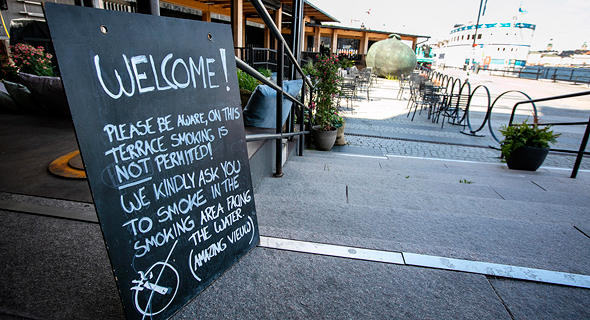 WELCOME!
PLEASE BE AWARE, ON THIS
TERRACE SMOKING IS
NOT PERMITTED!
WE KINDLY ASK YOU
TO SMOKE IN THE
SMOKING AREA FACING
THE WATER.
(AMAZING VIEW)